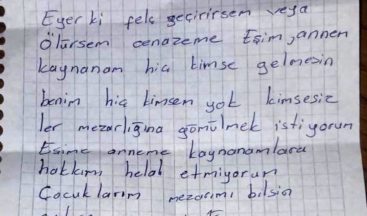 Eğer ki felç geçirirsem veya
Ölürsem cenazeme Eşim, annem
kaynanam hiç kimse gelmesin
benim hiç kimsem yok kimsesiz
ler mezarlığına gömülmek istiyorum
Eşime anneme kaynanamlara
hakkım helal etmiyorum
Çocuklarım mezarımı bilsin